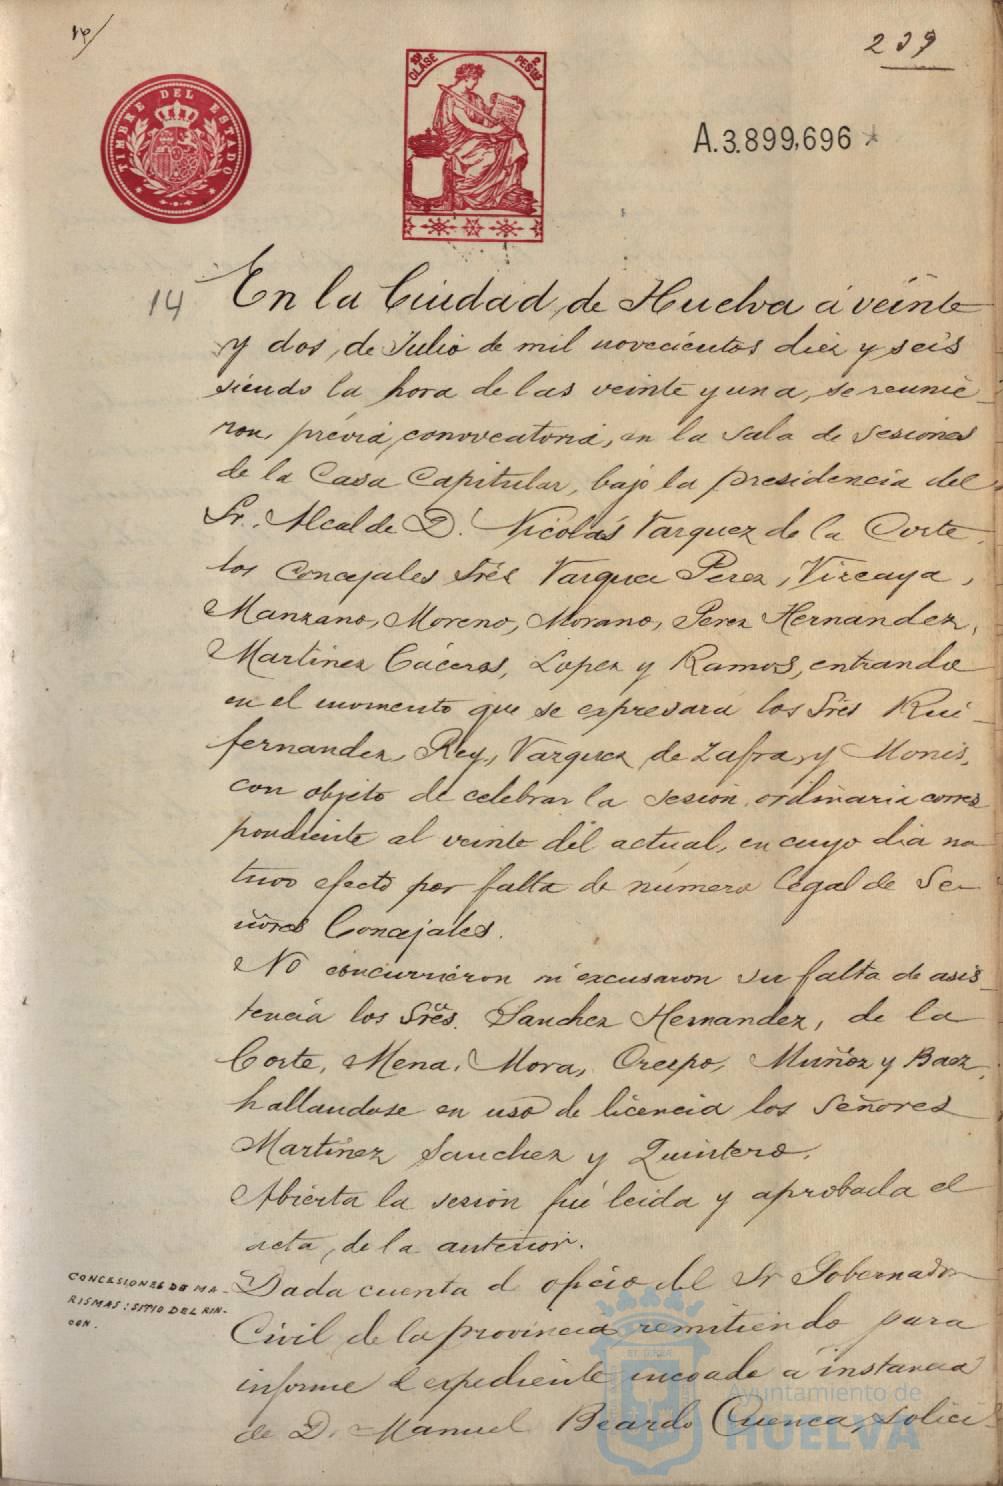 239
TIMBRE DEL ESTADO
10 CLASE 2 PESTAS
A.3.899,696
14
En la Ciudad, de Huelva á veinte
y dos, de Julio de mil novecientos diez y seis
siendo la hora de las veinte y una, se reunie-
ron, prévia, convocatoria, en la sala de sesiones
de la Casa Capitular, bajo la presidencia del
Sr. Alcalde D. Nicolás Vazquez de la Corte,
los Concejales Srés Vazquez Perez, Vizcaya,
Manzano, Moreno, Morano, Perez Hernandez,
Martinez Cáceres, Lopez y Ramos, entrando
en el momento que se expresará los Srés Rui-
fernandez, Rey, Vazquez de Zafra, y Monis,
con objeto de celebrar la sesion, ordinaria corres
pondiente al veinte del actual, en cuyo dia no
tuvo efecto por falta de número legal de Se-
ñores Concejales.
No concurrieron ni excusaron su falta de asis-
tencia los Srés. Sanchez Hernandez, de la
Corte, Mena, Mora, Crespo, Muñoz y Baez,
hallandose en uso de licencia los Señores
Martinez Sanchez y Quintero.
Abierta la sesion fué leida y aprobada el
acta, de la anterior.
CONCESIONES DE MA-
RISMAS: SITIO DEL RIN-
CON.
Dada cuenta de oficio del Sr Gobernador
Civil de la provincia remitiendo para
informe el expediente incoado á instancia
de D. Manuel Beardo Cuenca, solici-
Ayuntamiento de
HUELVA